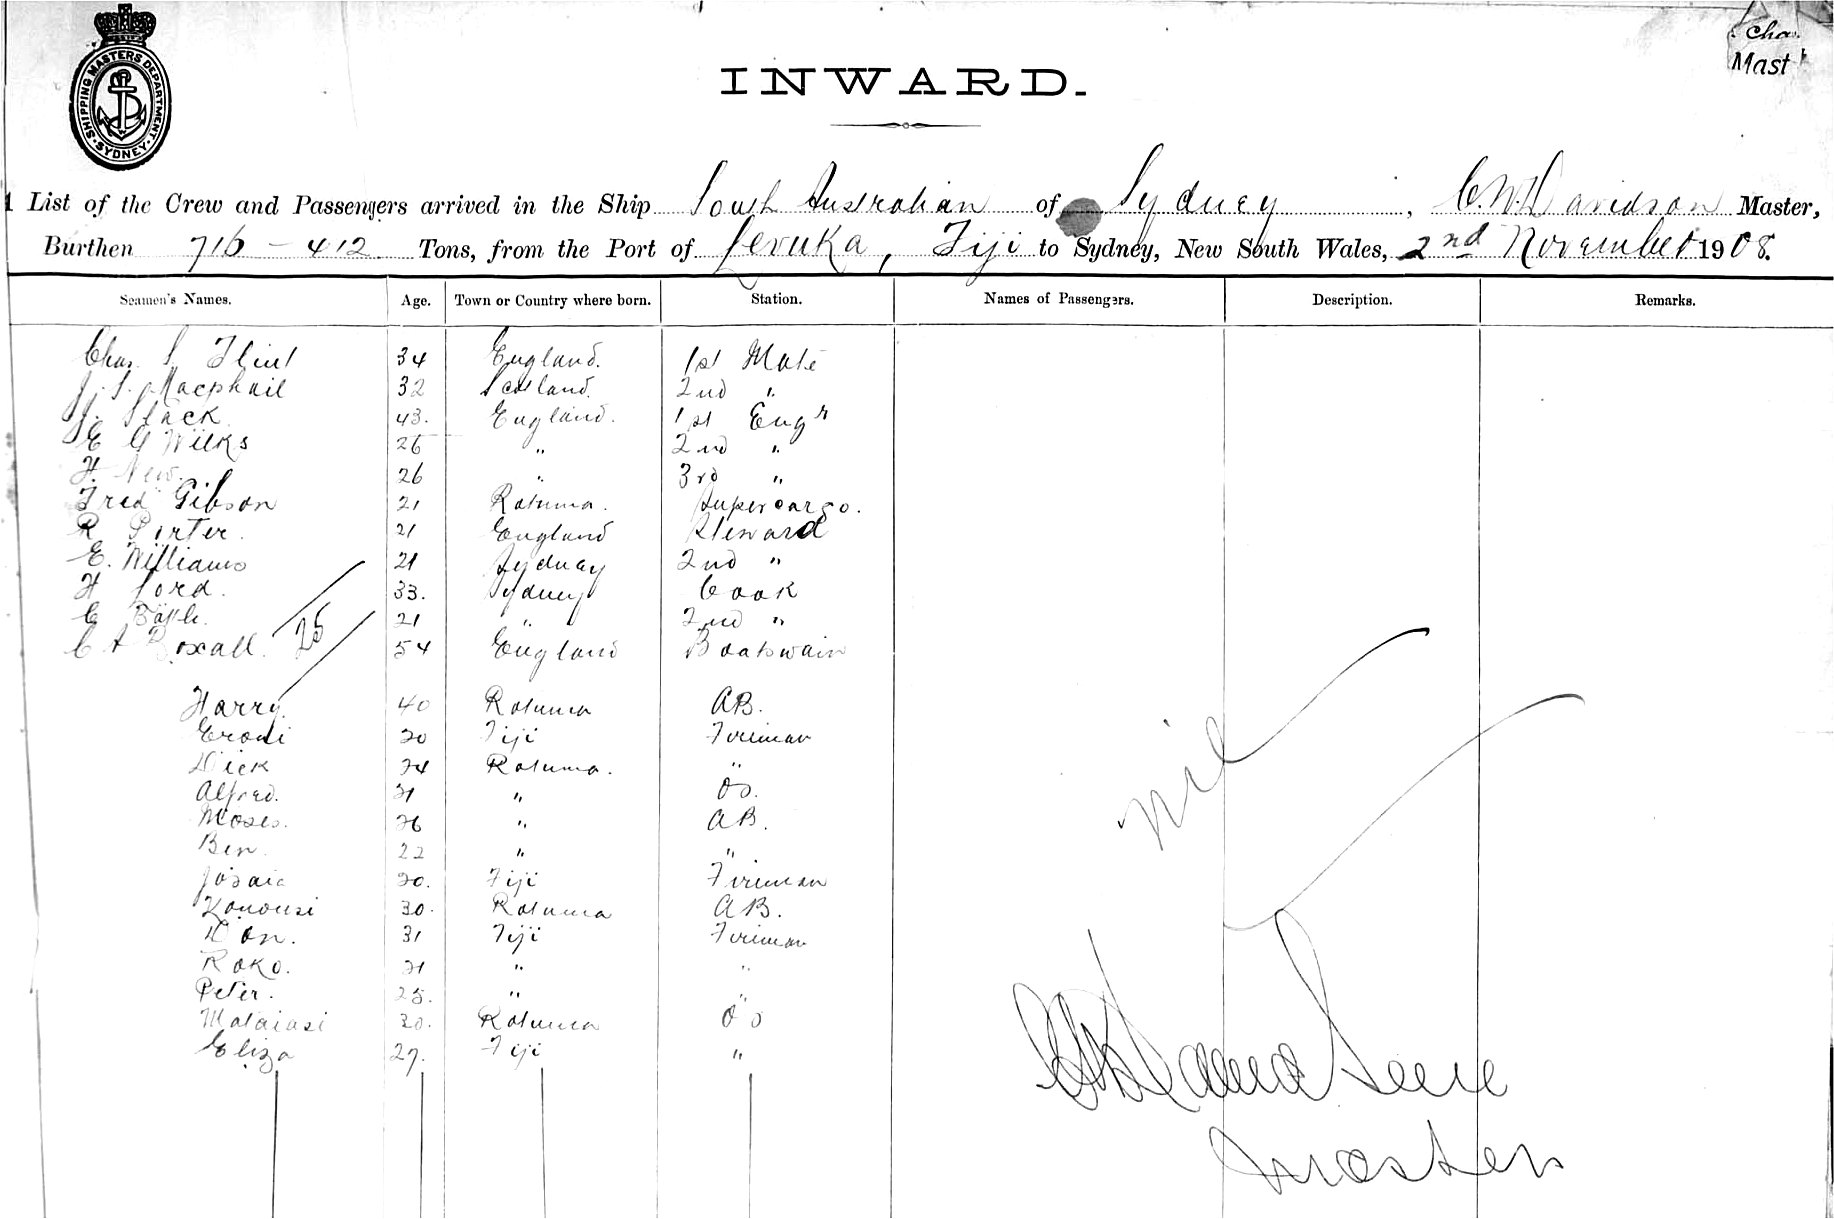 SHIPPING MASTERS DEPARTMENT. SYDNEY.
Cha.
Mast
INWARD.
List of the Crew and Passengers arrived in the Ship South Australian of Sydney, C.W. Davidson Master,
Burthen 716 - 412 Tons, from the Port of Levuka, Fiji to Sydney, New South Wales, 2nd November 1908.
Seamen's Names. Age. Town or Country where born. Station. Names of Passengers. Description. Remarks.
Chas. S. Flint 34 England. 1st Mate
J. S. Macphail 32 Scotland. 2nd "
J. Slack 43. England. 1st Engr
E G Wilks 26 " 2nd "
H. New. 26 " 3rd "
Fred Gibson 21 Rotuma. Supercargo.
R Porter. 21 England Steward
E. Williams 21 Sydney 2nd "
H Lord. 33. Sydney Cook
C 21 " 2nd "
C A Boxall. 54 England Boatswain
25
Harry. 40 Rotuma AB.
Eroni 20 Fiji Fireman
Dick 24 Rotuma. "
Alfred. 21 " OS.
Moses. 26 " AB.
Ben. 22 " "
Josaia 20. Fiji Fireman
30. Rotuma AB.
Don. 31 Fiji Fireman
Roko. 21 " "
Peter. 25. " "
Mataiasi 20. Rotuma OS
Eliza 27. Fiji "
nil
Master